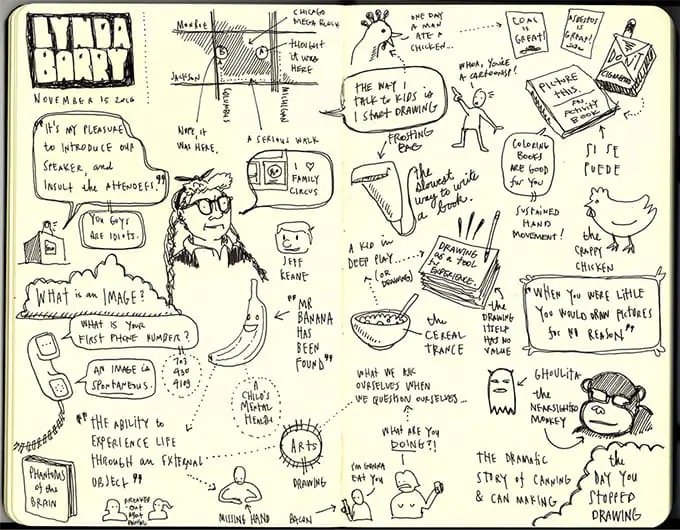 LYNDA
BARRY
NOVEMBER 15 2016
MONROE
CHICAGO
MEGA BLOCK
A
THOUGHT
IT WAS
HERE
JACKSON
COLUMBUS
MICHIGAN
NOPE, IT
WAS HERE.
A SERIOUS WALK
"IT'S MY PLEASURE
TO INTRODUCE OUR
SPEAKER, AND
INSULT THE ATTENDEES."
YOU GUYS
ARE IDIOTS.
I ♡
FAMILY
CIRCUS
JEFF
KEANE
WHAT IS AN IMAGE?
WHAT IS YOUR
FIRST PHONE NUMBER?
AN IMAGE IS
SPONTANEOUS.
"MR
BANANA
HAS
BEEN
FOUND"
A
CHILD'S
MENTAL
HEALTH
"THE ABILITY TO
EXPERIENCE LIFE
THROUGH AN EXTERNAL
OBJECT"
ARTS
DRAWING
PHANTOMS
OF THE
BRAIN
MISSING HAND
BACON
ONE DAY
A MAN
ATE A
CHICKEN...
COAL IS
GREAT!
ASBESTOS
IS
GREAT!
DON'T
CIGARETTES
WHOA, YOU'RE
A CARTOONIST!
THE WAY I
TALK TO KIDS IS
I START DRAWING
PICTURE
THIS.
AN
ACTIVITY
BOOK
FROSTING
BAG
COLORING
BOOKS
ARE GOOD
FOR YOU
SI SE
PUEDE
THE SLOWEST
WAY TO WRITE
A BOOK.
SUSTAINED
HAND
MOVEMENT!
THE
CRAPPY
CHICKEN
A KID IN
DEEP PLAY...
(OR DRAWING)
DRAWING
AS A TOOL
IN
EXPERIENCE.
THE
DRAWING
ITSELF
HAS NO
VALUE
"WHEN YOU WERE LITTLE
YOU WOULD DRAW PICTURES
FOR NO REASON"
THE
CEREAL
TRANCE
WHAT WE ASK
OURSELVES WHEN
WE QUESTION OURSELVES...
WHAT ARE YOU
DOING?!
I'M GONNA
EAT YOU
GHOULITA
THE
NEARSIGHTED
MONKEY
THE DRAMATIC
STORY OF CANNING
& CAN MAKING
THE
DAY YOU
STOPPED
DRAWING